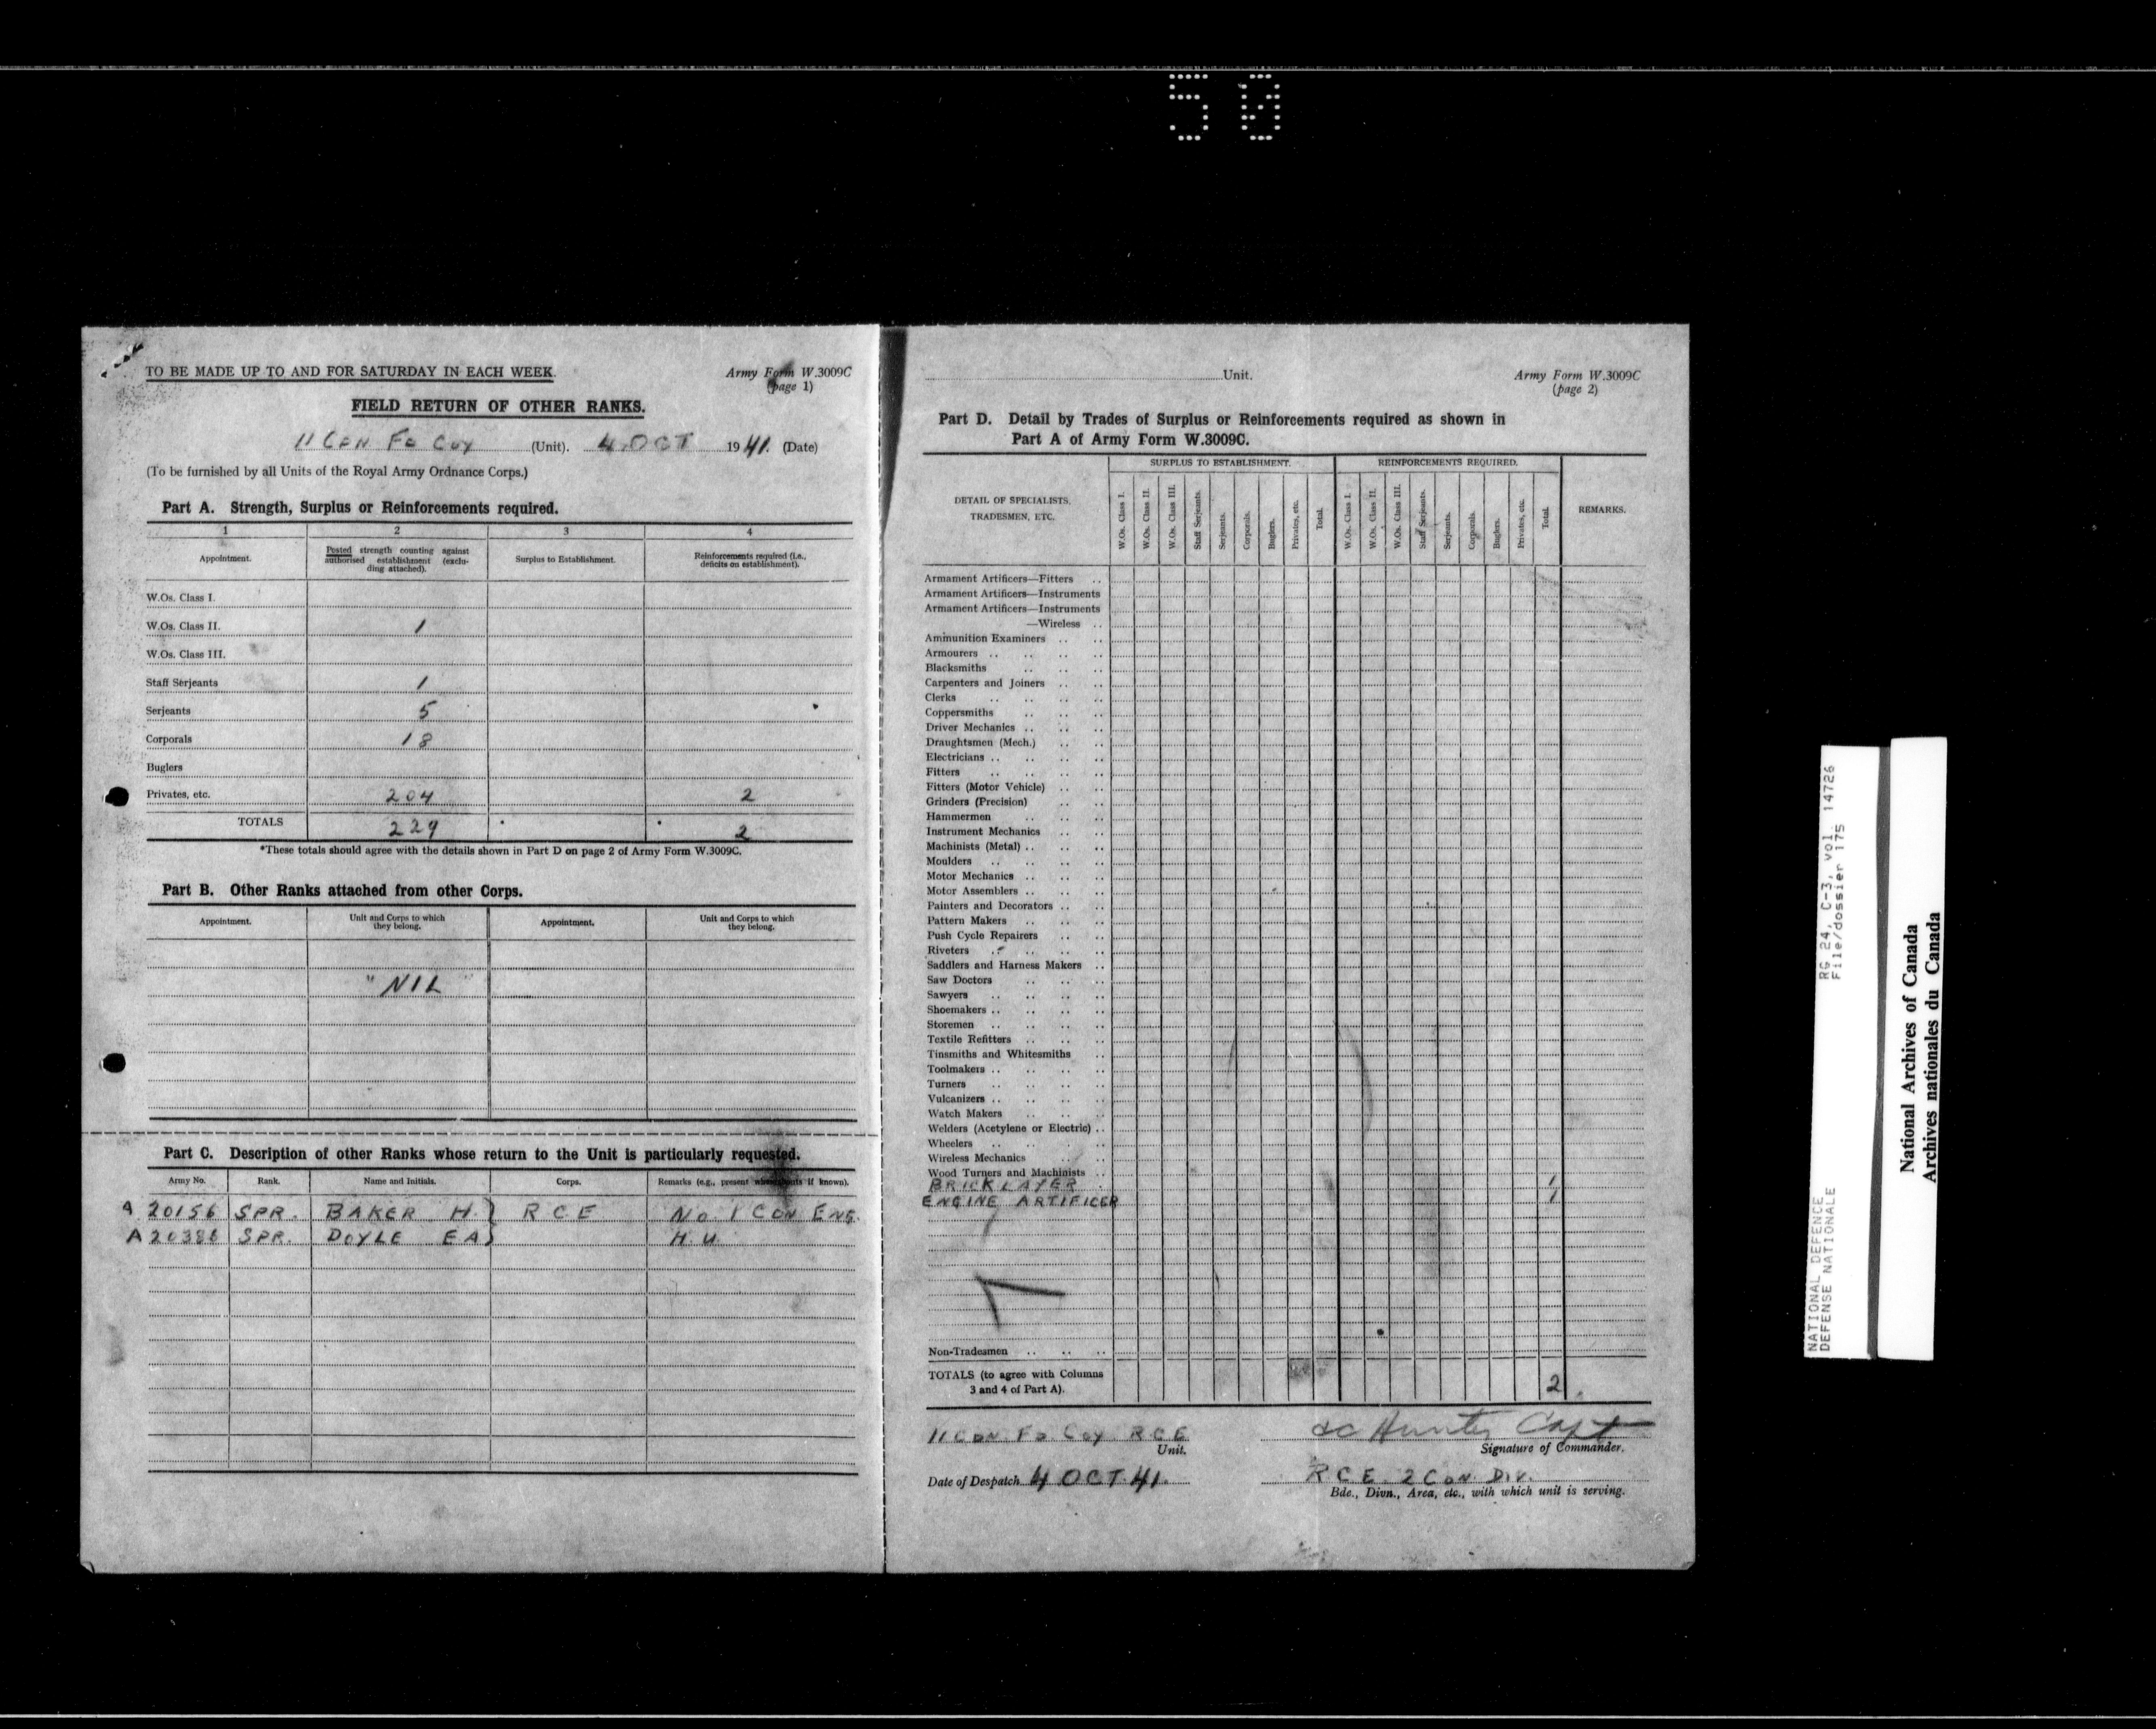 50
TO BE MADE UP TO AND FOR SATURDAY IN EACH WEEK.
Army Form W.3009C
(page 1)
FIELD RETURN OF OTHER RANKS.
11 CDN FD COY (Unit). 4 OCT 1941. (Date)
(To be furnished by all Units of the Royal Army Ordnance Corps.)
Part A. Strength, Surplus or Reinforcements required.
1 2 3 4
Appointment.
Posted strength counting against authorised establishment (excluding attached).
Surplus to Establishment.
Reinforcements required (i.e., deficits on establishment).
W.Os. Class I.
W.Os. Class II. 1
W.Os. Class III.
Staff Serjeants 1
Serjeants 5
Corporals 18
Buglers
Privates, etc. 204 2
TOTALS 229 2
*These totals should agree with the details shown in Part D on page 2 of Army Form W.3009C.
Part B. Other Ranks attached from other Corps.
Appointment. Unit and Corps to which they belong. Appointment. Unit and Corps to which they belong.
"NIL"
Part C. Description of other Ranks whose return to the Unit is particularly requested.
Army No. Rank. Name and Initials. Corps. Remarks (e.g., present whereabouts if known).
A 20156 SPR. BAKER H. } R C E No 1 CDN ENG.
A SPR. DOYLE EA } H.U.
Unit.
Army Form W.3009C
(page 2)
Part D. Detail by Trades of Surplus or Reinforcements required as shown in
Part A of Army Form W.3009C.
DETAIL OF SPECIALISTS, TRADESMEN, ETC.
SURPLUS TO ESTABLISHMENT. REINFORCEMENTS REQUIRED. REMARKS.
W.Os. Class I. W.Os. Class II. W.Os. Class III. Staff Serjeants. Serjeants. Corporals. Buglers. Privates, etc. Total. W.Os. Class I. W.Os. Class II. W.Os. Class III. Staff Serjeants. Serjeants. Corporals. Buglers. Privates, etc. Total.
Armament Artificers—Fitters ..
Armament Artificers—Instruments
Armament Artificers—Instruments
—Wireless ..
Ammunition Examiners .. ..
Armourers .. .. .. ..
Blacksmiths .. .. ..
Carpenters and Joiners .. ..
Clerks .. .. .. ..
Coppersmiths .. .. ..
Driver Mechanics .. .. ..
Draughtsmen (Mech.) .. ..
Electricians .. .. .. ..
Fitters .. .. .. ..
Fitters (Motor Vehicle) .. ..
Grinders (Precision) .. ..
Hammermen .. .. ..
Instrument Mechanics .. ..
Machinists (Metal) .. .. ..
Moulders .. .. .. ..
Motor Mechanics .. .. ..
Motor Assemblers .. .. ..
Painters and Decorators .. ..
Pattern Makers .. .. ..
Push Cycle Repairers .. ..
Riveters .. .. .. ..
Saddlers and Harness Makers ..
Saw Doctors .. .. ..
Sawyers .. .. .. ..
Shoemakers .. .. .. ..
Storemen .. .. .. ..
Textile Refitters .. .. ..
Tinsmiths and Whitesmiths ..
Toolmakers .. .. .. ..
Turners .. .. .. ..
Vulcanizers .. .. .. ..
Watch Makers .. .. ..
Welders (Acetylene or Electric) ..
Wheelers .. .. .. ..
Wireless Mechanics .. ..
Wood Turners and Machinists ..
BRICKLAYER 1
ENGINE ARTIFICER 1
Non-Tradesmen .. .. ..
TOTALS (to agree with Columns
3 and 4 of Part A). 2
11 CDN FD COY RCE
Unit.
Hunter Capt
Signature of Commander.
Date of Despatch 4 OCT 41.
R C E 2 CDN. DIV.
Bde., Divn., Area, etc., with which unit is serving.
NATIONAL DEFENCE RG 24, C-3, vol. 14726
DEFENSE NATIONALE File/dossier 175
National Archives of Canada
Archives nationales du Canada